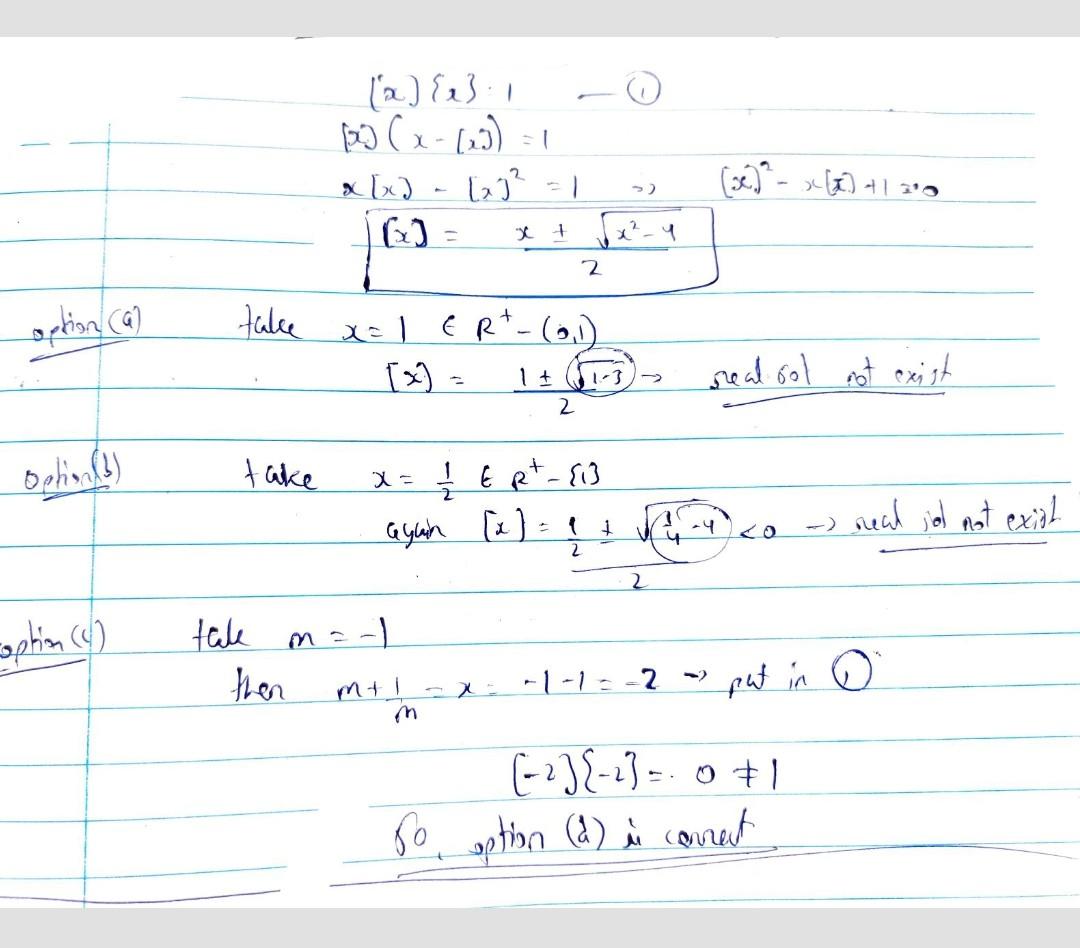 [x]{x} = 1 — ①
[x](x - [x]) = 1
x[x] - [x]² = 1 => [x]² - x[x] + 1 = 0
[x] = x ± √x²-4 / 2
option (a) take x = 1 ∈ R⁺ - (0,1)
[x] = 1 ± √1-3 / 2 → real sol not exist
option (b) take x = 1/2 ∈ R⁺ - {1}
again [x] = 1/2 ± √1/4 - 4 / 2 < 0 → real sol not exist
option (c) take m = -1
then m + 1/m = x = -1-1 = -2 → put in ①
[-2]{-2} = 0 ≠ 1
So, option (d) is correct